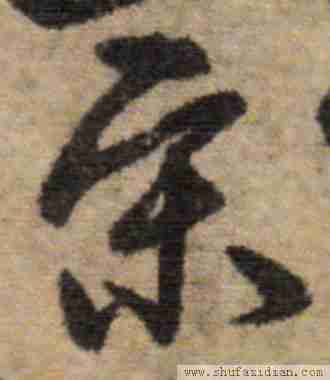 宗
www.shufazidian.com